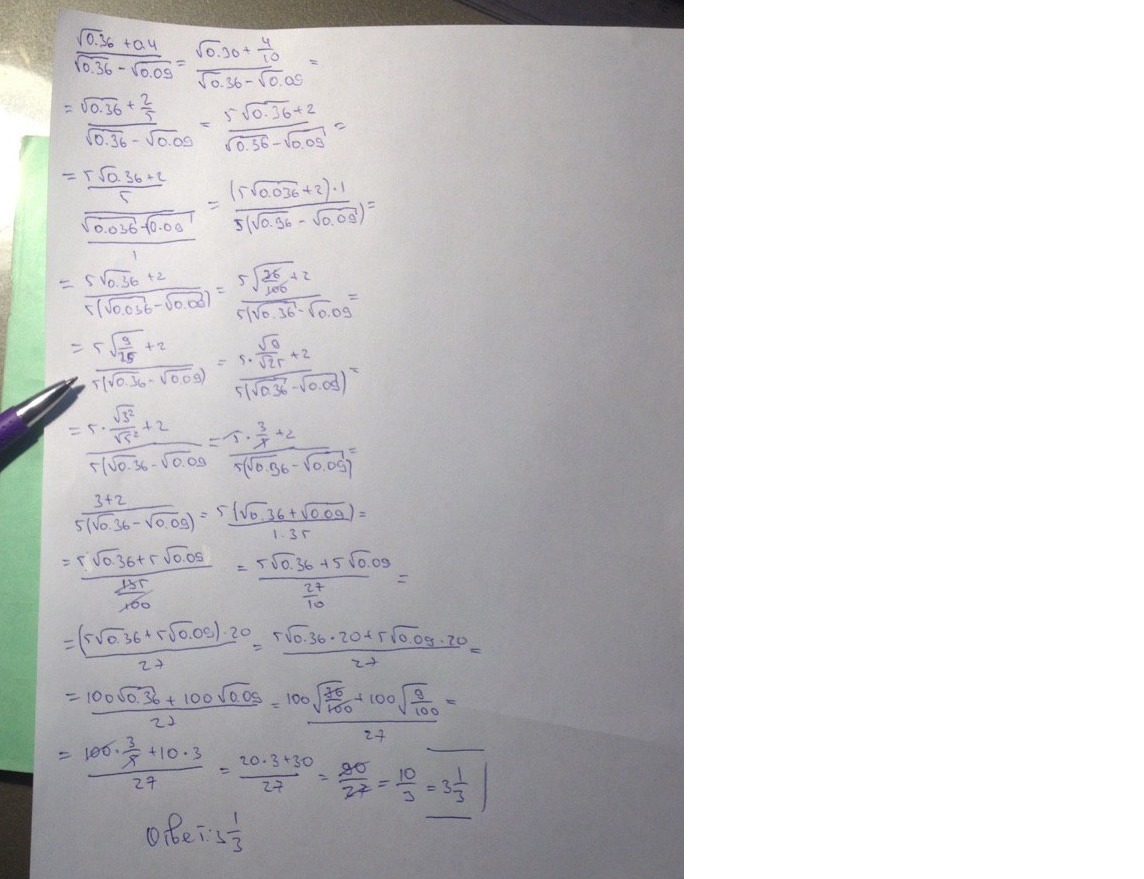 (√0.36 + 0.4)/(√0.36 − √0.09) = (√0.30 + 4/10)/(√0.36 − √0.09) =
= (√0.36 + 2/5)/(√0.36 − √0.09) = (5√0.36+2)/(√0.36 − √0.09) =
= ((5√0.36+2)/5)/((√0.036−√0.09)/1) = ((5√0.036+2)·1)/(5(√0.36 − √0.09)) =
= (5√0.36 +2)/(5(√0.036−√0.09)) = (5√(36/100) +2)/(5(√0.36−√0.09 =
= (5√(9/25) +2)/(5(√0.36−√0.09)) = (5·√9/√25 +2)/(5(√0.36−√0.09)) =
= (5·√3²/√5² +2)/(5(√0.36−√0.09 = (5·3/5 +2)/(5(√0.36−√0.09)) =
(3+2)/(5(√0.36−√0.09)) = 5(√0.36+√0.09)/1.35 =
= (5√0.36+5√0.09)/(135/100) = (5√0.36+5√0.09)/(27/10) =
= (5√0.36+5√0.09)·20/27 = (5√0.36·20+5√0.09·20)/27 =
= (100√0.36 + 100√0.09)/27 = (100√(36/100)+100√(9/100))/27 =
= (100·3/5 +10·3)/27 = (20·3+30)/27 = 90/27 = 10/3 = 3 1/3
Ответ: 3 1/3